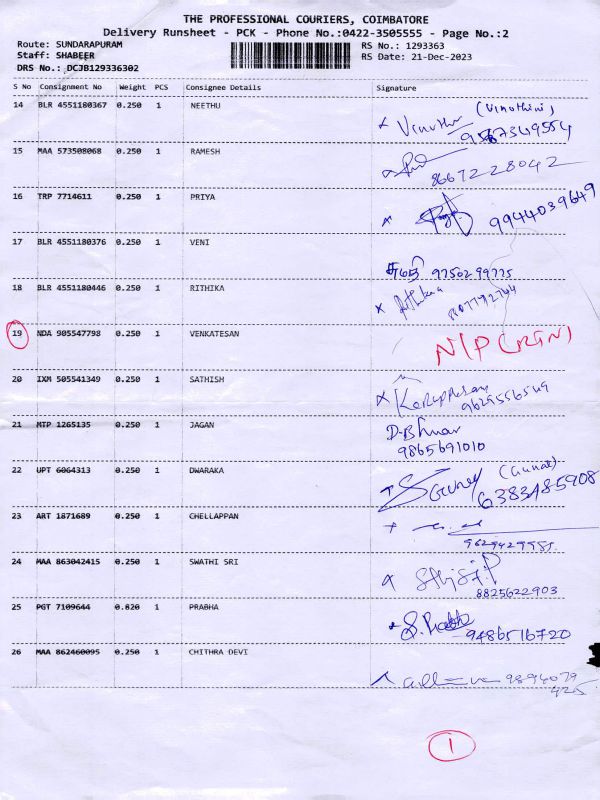 THE PROFESSIONAL COURIERS, COIMBATORE
Delivery Runsheet - PCK - Phone No.:0422-3505555 - Page No.:2
Route: SUNDARAPURAM
RS No.: 1293363
Staff: SHABEER
RS Date: 21-Dec-2023
DRS No.: DCJB129336302
S No Consignment No Weight PCS Consignee Details Signature
14 BLR 4551180367 0.250 1 NEETHU (Vinothini)
15 MAA 573508068 0.250 1 RAMESH 8667228042
16 TRP 7714611 0.250 1 PRIYA 9944039649
17 BLR 4551180376 0.250 1 VENI 9750299775
18 BLR 4551180446 0.250 1 RITHIKA Rithika
19 NDA 905547798 0.250 1 VENKATESAN N/P (RTN)
20 IXM 505541349 0.250 1 SATHISH 9629556549
21 MTP 1265135 0.250 1 JAGAN
9865691010
22 UPT 6064313 0.250 1 DWARAKA
23 ART 1871689 0.250 1 CHELLAPPAN
24 MAA 863042415 0.250 1 SWATHI SRI
8825622903
25 PGT 7109644 0.820 1 PRABHA S. Prabha
9486516720
26 MAA 862460095 0.250 1 CHITHRA DEVI 9894079
425
1